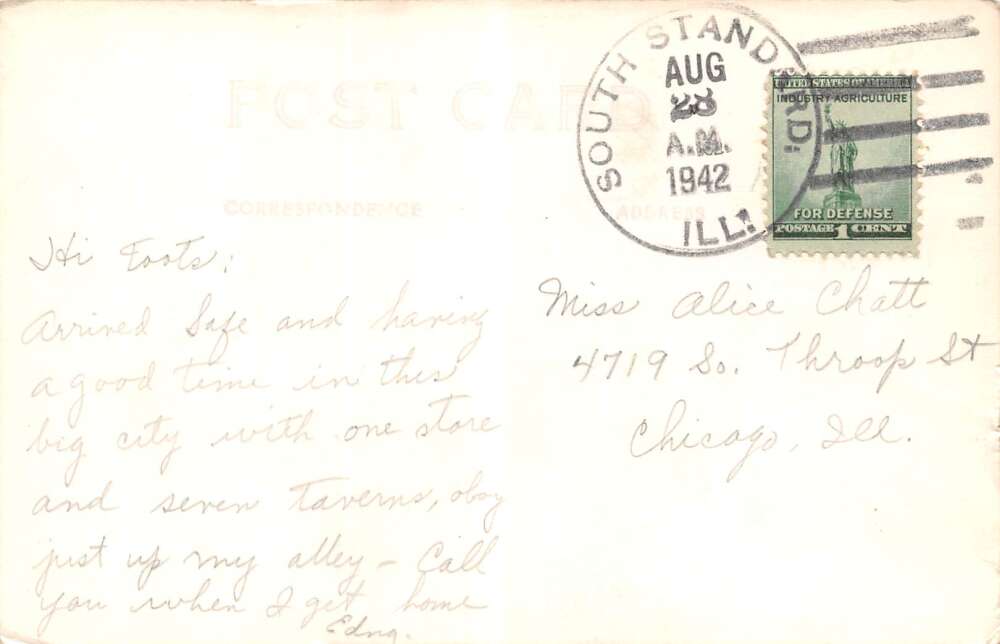 POST CARD
CORRESPONDENCE
ADDRESS
SOUTH STANDARD,
AUG
28
A.M.
1942
ILL.
UNITED STATES OF AMERICA
INDUSTRY AGRICULTURE
FOR DEFENSE
POSTAGE 1 CENT
Hi Toots:
Arrived Safe and having
a good time in this
big city with one store
and seven taverns, oboy
just up my alley - Call
you when I get home
Edna.
Miss Alice Chatt
4719 So. Throop St
Chicago, Ill.